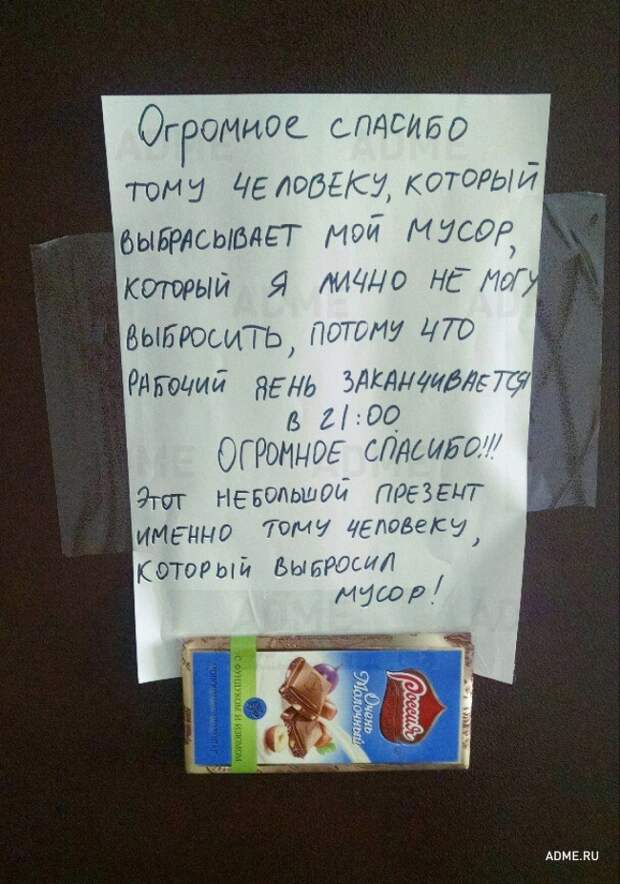 Огромное спасибо
тому человеку, который
выбрасывает мой мусор,
который я лично не могу
выбросить, потому что
рабочий день заканчивается
в 21:00.
Огромное спасибо!!!
Этот небольшой презент
именно тому человеку,
который выбросил
мусор!
Россия
Очень
Молочный
с фундуком и изюмом
ADME.RU